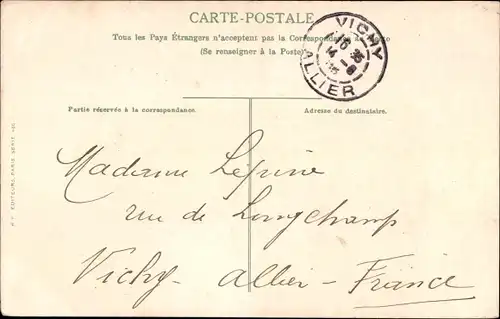 CARTE-POSTALE
Tous les Pays Étrangers n'acceptent pas la Correspondance au Recto
(Se renseigner à la Poste)
VICHY
ALLIER
Partie réservée à la correspondance.
Adresse du destinataire.
Madame Lépine
rue de Longchamp
Vichy - Allier - France